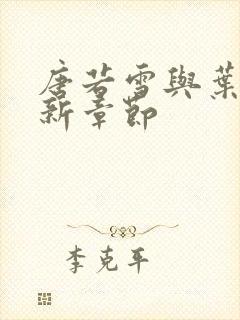 唐若雪與葉
新章節
李克平